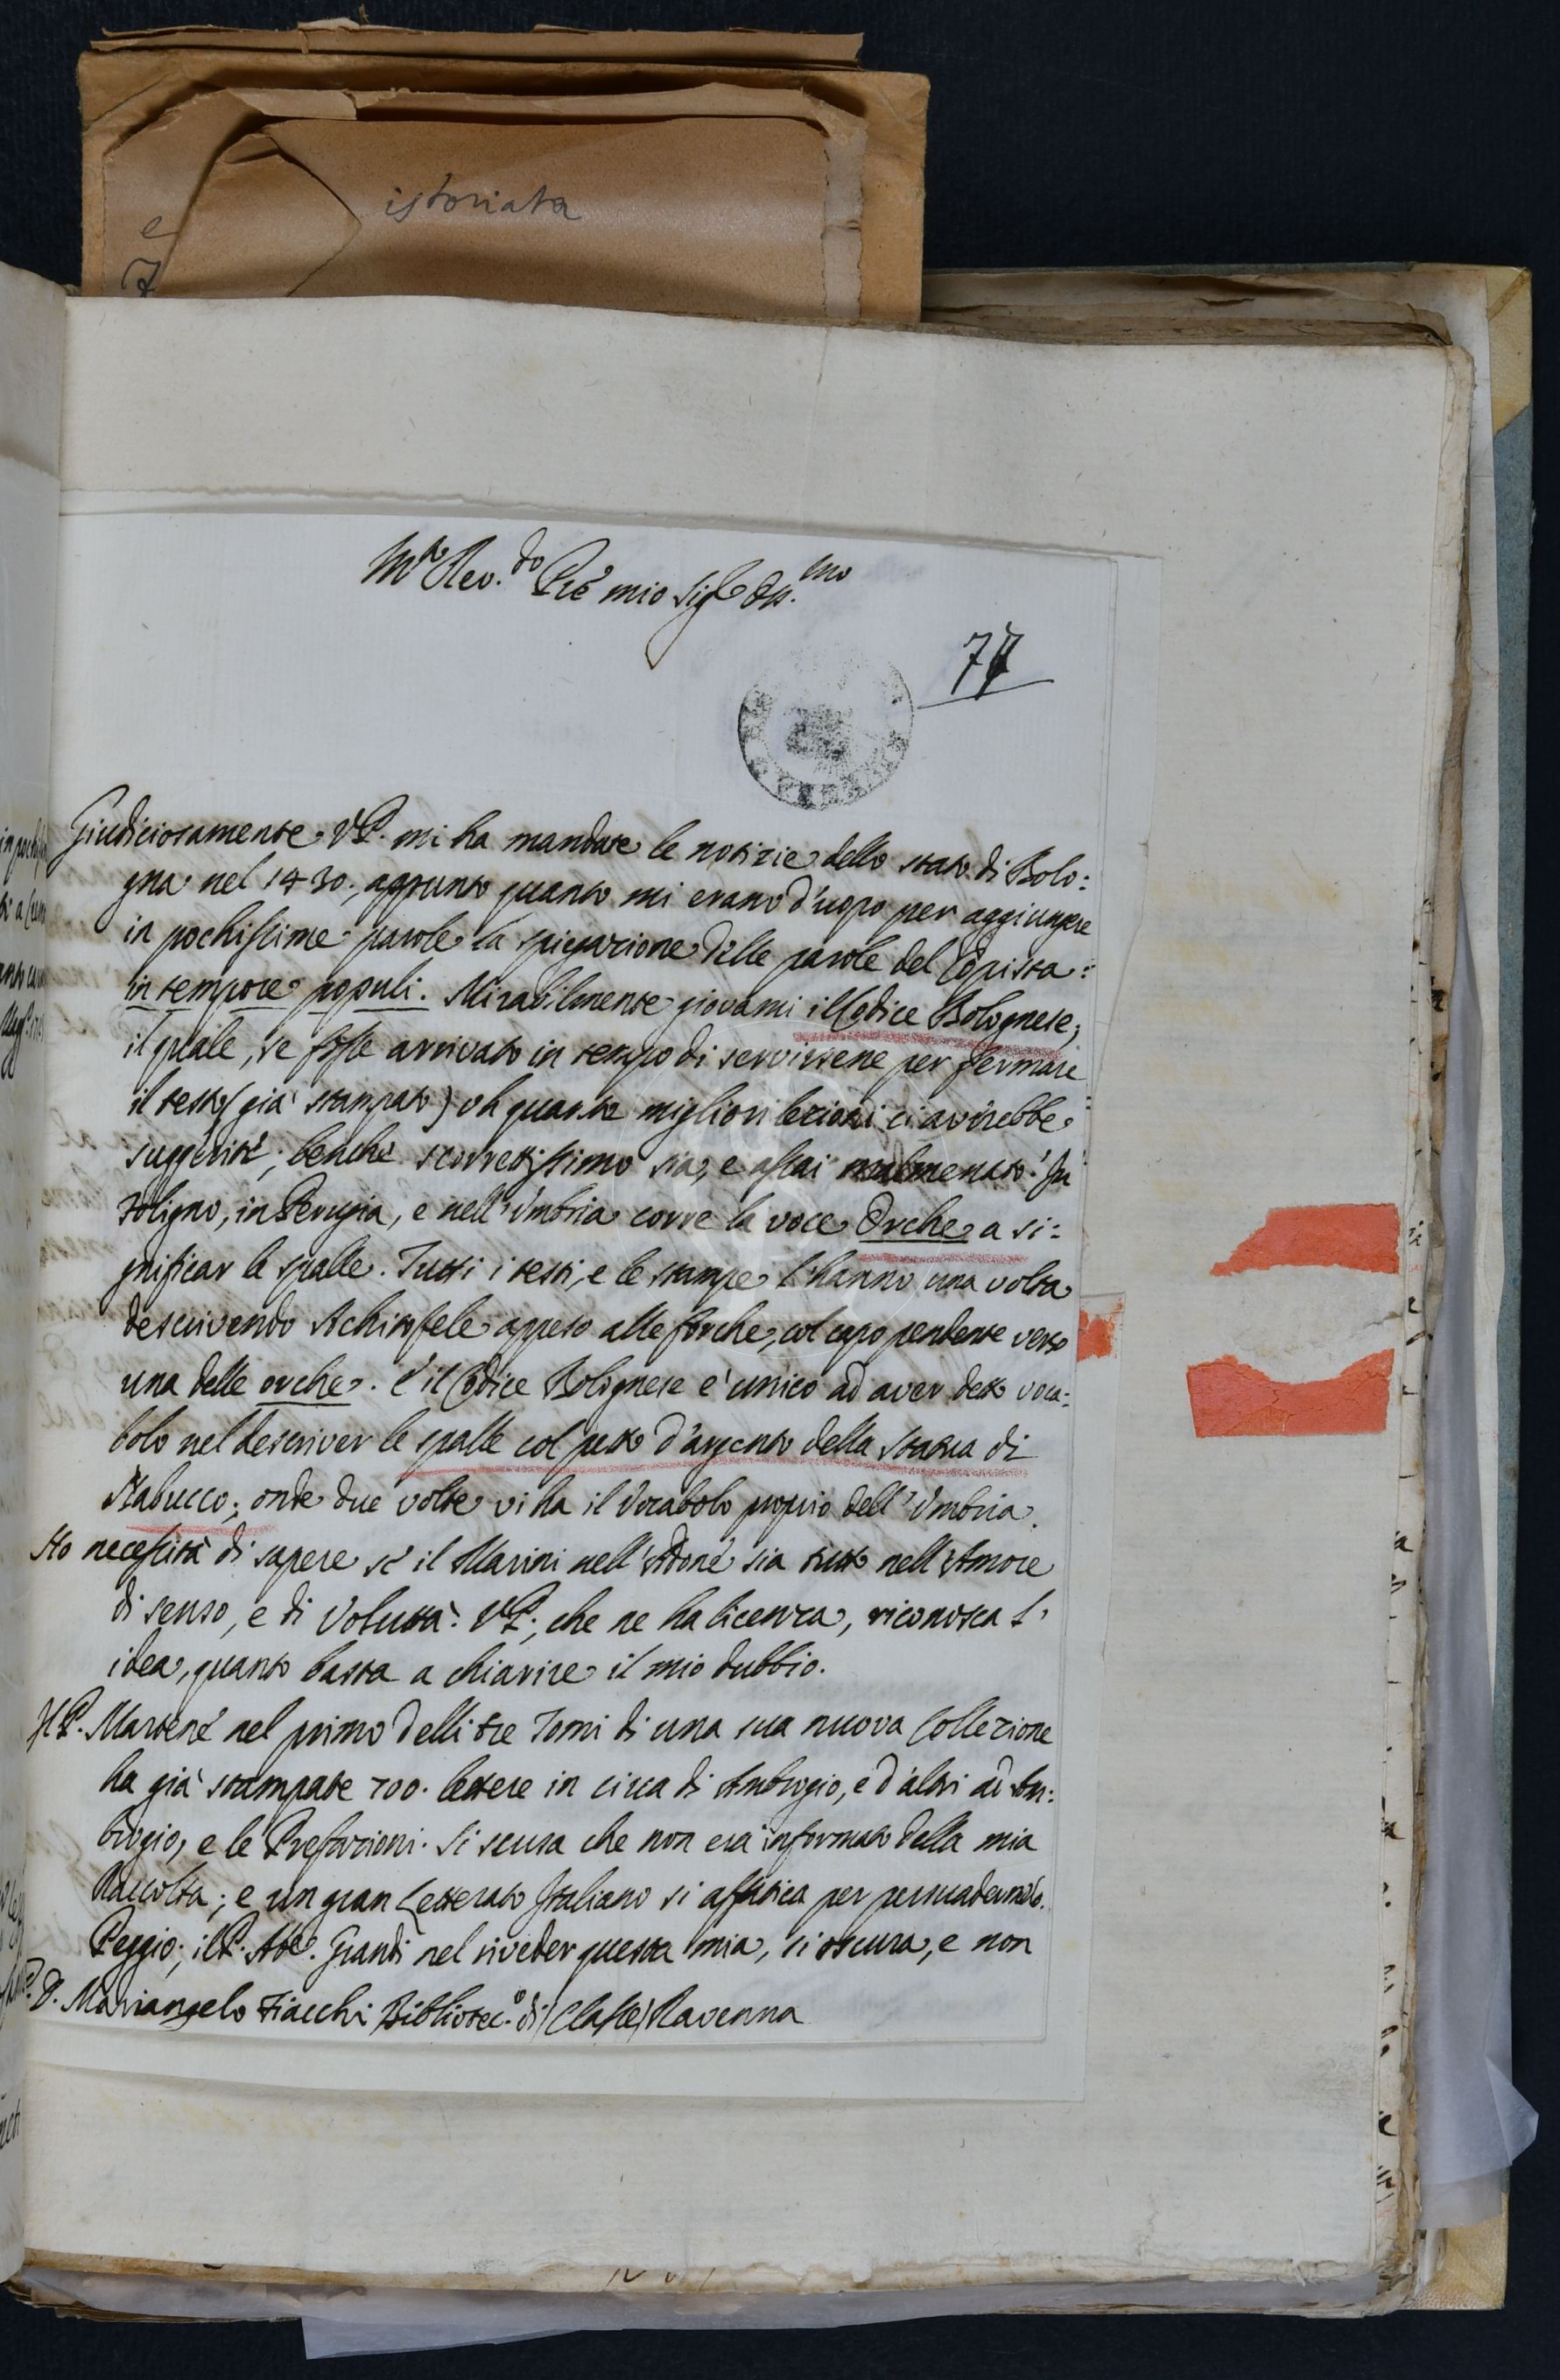 istoriata
e
7
M.to Rev.do Pre mio Sig.e Oss.mo
77
Giudiciosamente V.P. mi ha mandate le notizie dello stato di Bolo:
gna nel 1430., appunto quanto mi erano d'uopo per aggiungere
in pochissime parole la spiegazione delle parole del Copista:
in tempore populi. Mirabilmente giovami il Codice Bolognese,
il quale, se fosse arrivato in tempo di servirsene per fermare
il testo (già stampato) oh quante migliori lezioni ci avrebbe
suggerite, benchè scorrettissimo sia, e assai malmenato! In
Foligno, in Perugia, e nell'Umbria corre la voce Orche a si:
gnificar le spalle. Tutti i testi, e le stampe l'hanno una volta
descrivendo Achitofele appeso alle forche, col capo pendente verso
una delle orche. E il Codice Bolognese è unico ad aver detto voca:
bolo nel descriver le spalle col petto d'argento della Statua di
Nabucco; onde due volte vi ha il Vocabolo proprio dell'Umbria.
Ho necessità di sapere se il Marini nell'Adone sia tutto nell'Amore
di senso, e di Voluttà. V.P., che ne ha licenza, riconosca l'
idea, quanto basta a chiarire il mio dubbio.
Il P. Martene nel primo delli tre Tomi di una sua nuova Collezione
ha già stampate 700. lettere in circa di Ambrogio, e d'altri ad Am:
brogio, e le Prefazioni. Si scusa che non era informato della mia
Raccolta; e un gran Letterato Italiano si affatica per persuadermelo.
Peggio; il P. Abe. Grandi nel riveder questa mia, si oscura, e non
P. D. Mariangelo Fiacchi Bibliotec.o di (Classe) Ravenna